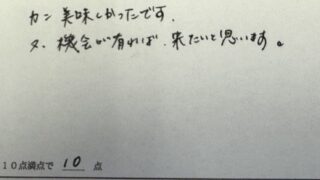 カン美味しかったです。
又、機会が有れば、来たいと思います。
10点満点で 10 点